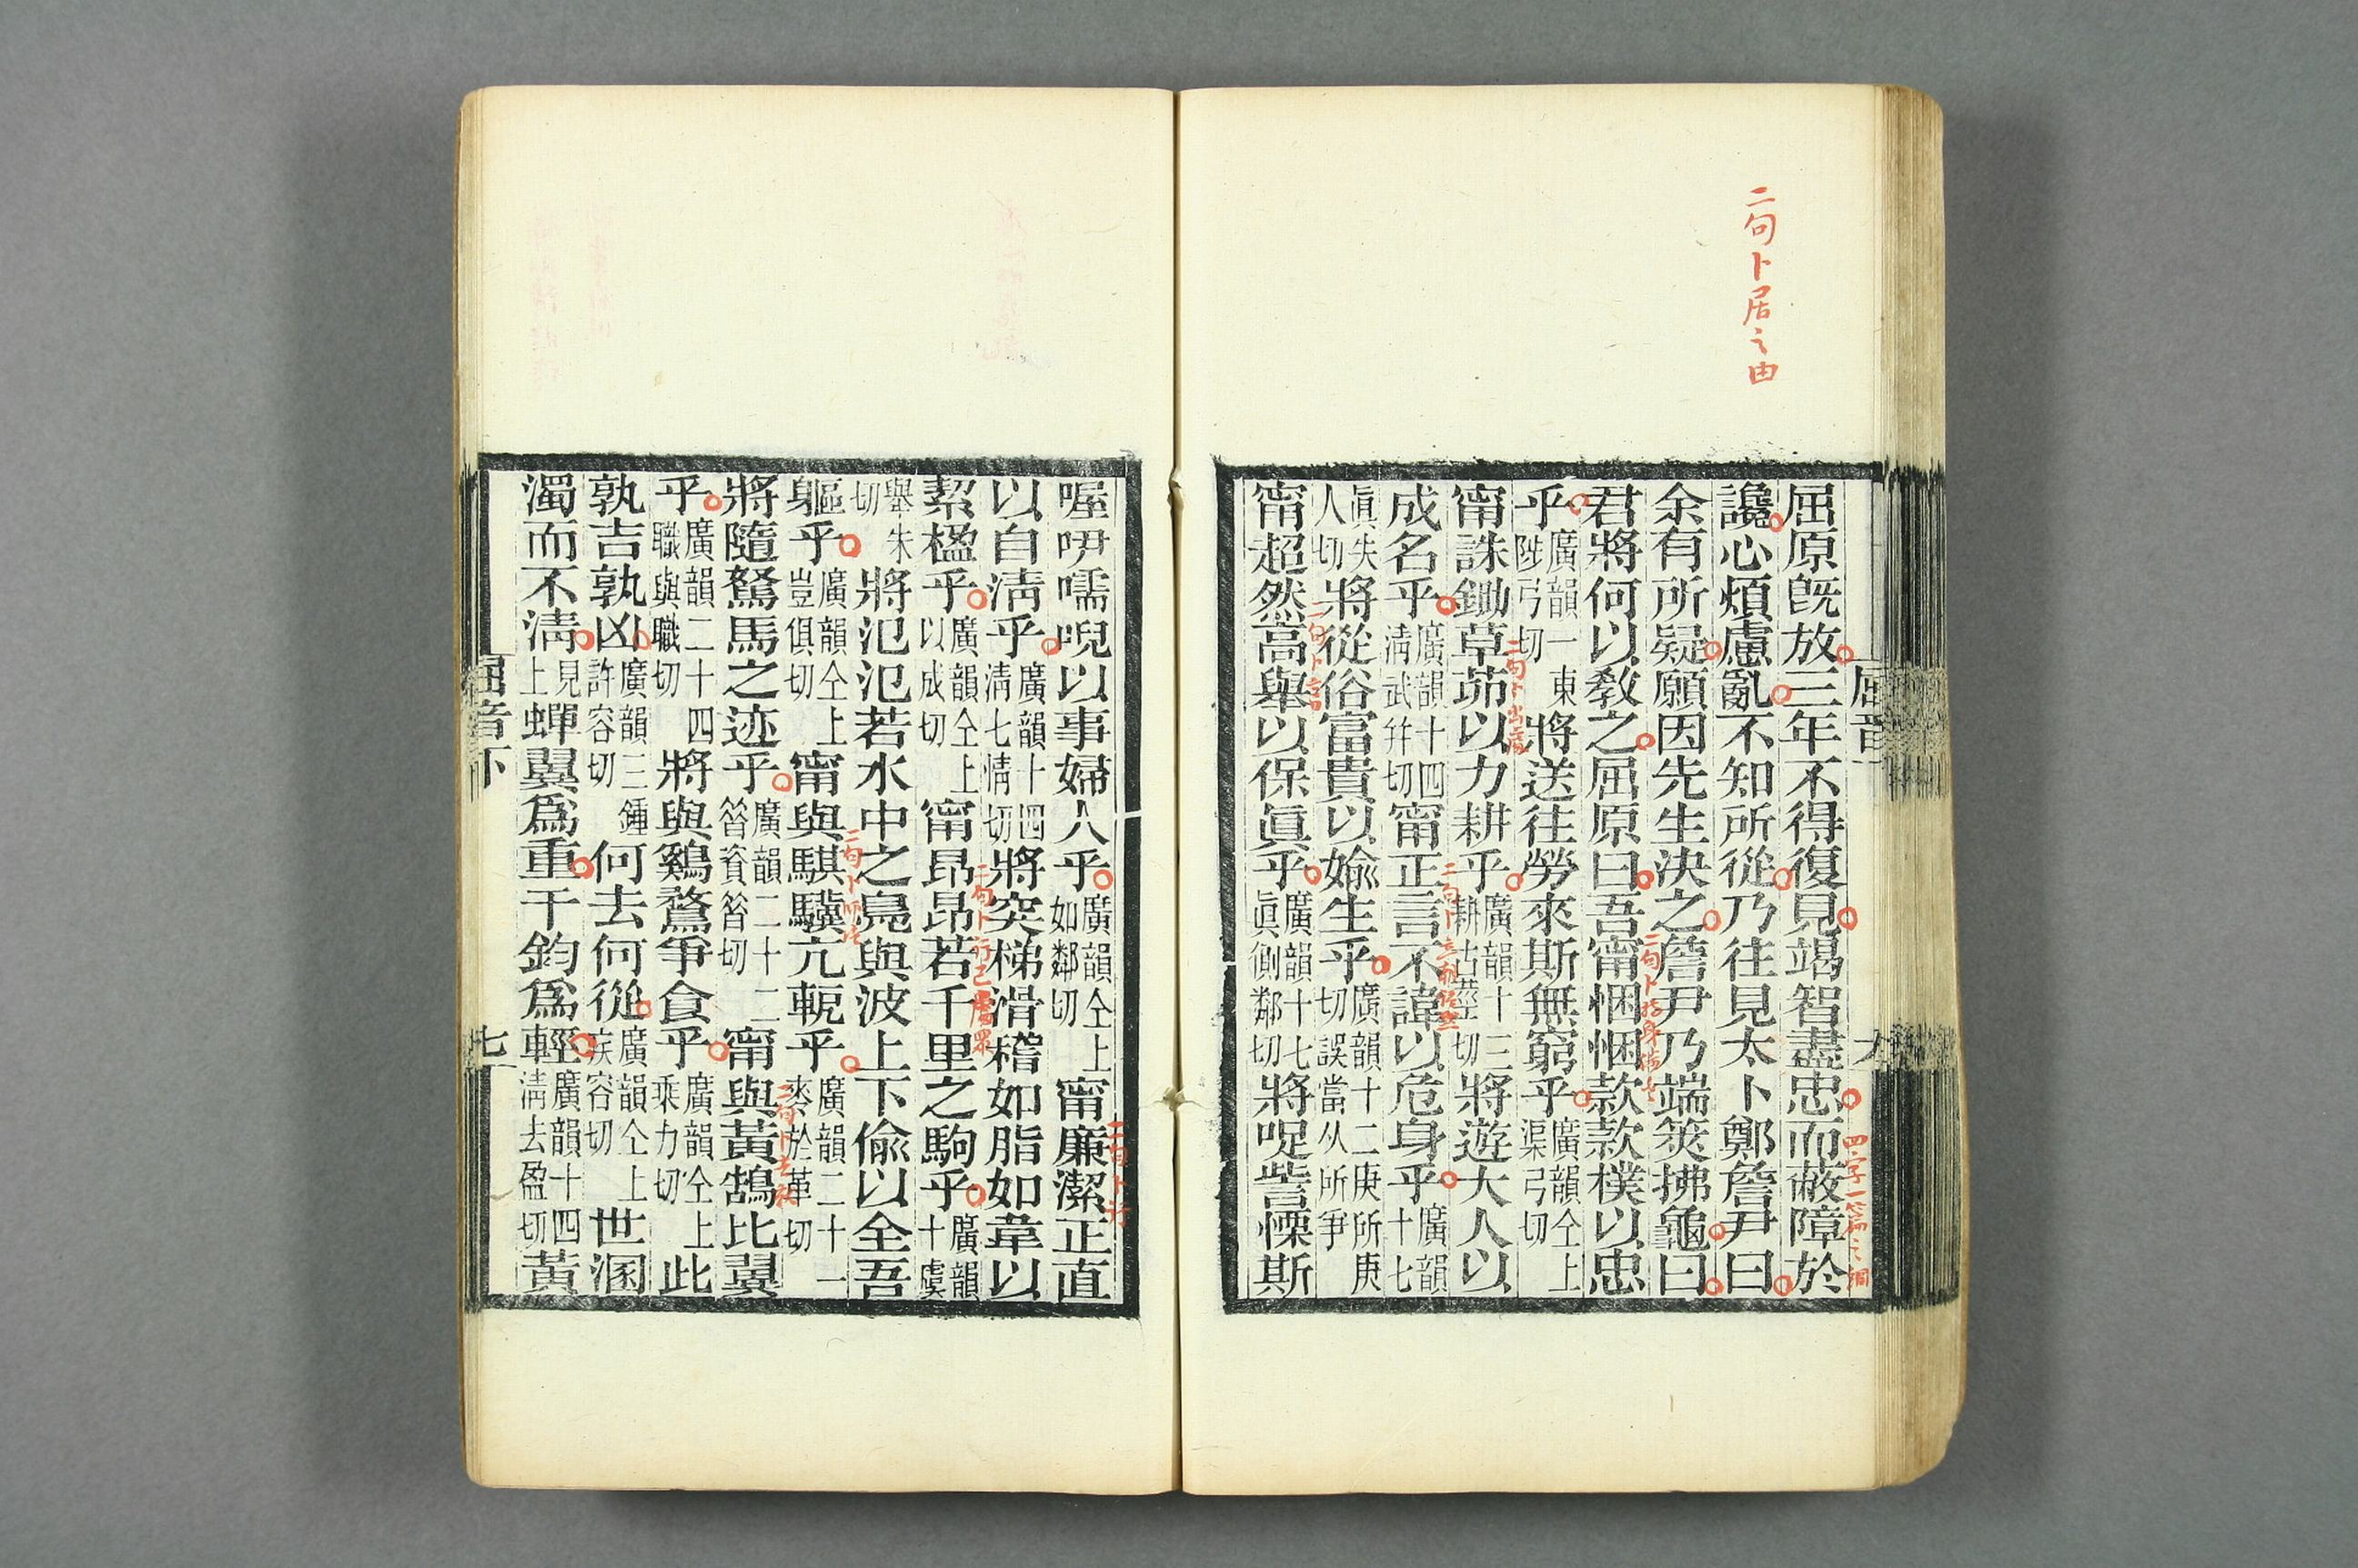 二句卜居之由
屈原既放三年不得復見竭智盡忠而蔽障於
四字一篇之綱
讒心煩慮亂不知所從乃往見太卜鄭詹尹曰
余有所疑願因先生決之詹尹乃端筴拂龜曰
君將何以敎之屈原曰吾甯悃悃款款樸以忠
乎廣韻一東陟弓切將送往勞來斯無窮乎廣韻仝上渠弓切
甯誅鋤草茆以力耕乎廣韻十三耕古莖切將遊大人以
成名乎廣韻十四淸武幷切甯正言不諱以危身乎廣韻十七
眞失人切將從俗富貴以媮生乎廣韻十二庚所庚切誤當从所爭
甯超然高舉以保眞乎廣韻十七眞側鄰切將哫訾慄斯
喔咿嚅唲以事婦人乎廣韻仝上如鄰切甯廉潔正直
以自淸乎廣韻十四淸七情切將突梯滑稽如脂如韋以
絜楹乎廣韻仝上以成切甯昂昂若千里之駒乎廣韻十虞
舉朱切將氾氾若水中之鳧與波上下偸以全吾
軀乎廣韻仝上豈俱切甯與騏驥亢軶乎廣韻二十一麥於革切
將隨駑馬之迹乎廣韻二十二昝資昝切甯與黃鵠比翼
乎廣韻二十四職與職切將與鷄鶩爭食乎廣韻仝上乘力切此
孰吉孰凶廣韻三鍾許容切何去何從廣韻仝上疾容切世溷
濁而不淸見上蟬翼爲重千鈞爲輕廣韻十四淸去盈切黃
屈音下
七